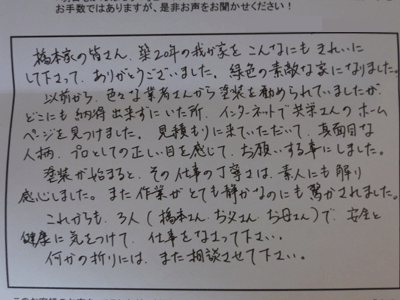 お手数ではありますが、是非お声をお聞かせください！
橋本家の皆さん、築20年の我が家を こんなにも きれいに
して下さって、ありがとうございました。緑色の素敵な家になりました。
以前から、色々な業者さんから塗装を勧められていましたが、
どこにも 納得 出来ずにいた所、インターネットで共栄さんのホーム
ページを見つけました。見積もりに来ていただいて、真面目な
人柄、プロとしての正しい目を感じて、お願いする事にしました。
塗装が始まると、その仕事の丁寧さは、素人にも解り
感心しました。また作業がとても静かなのにも驚かされました。
これからも、3人（橋本さん、お父さん、お母さん）で、安全と
健康に気をつけて、仕事をなさって下さい。
何かの折りには、また相談させて下さい。